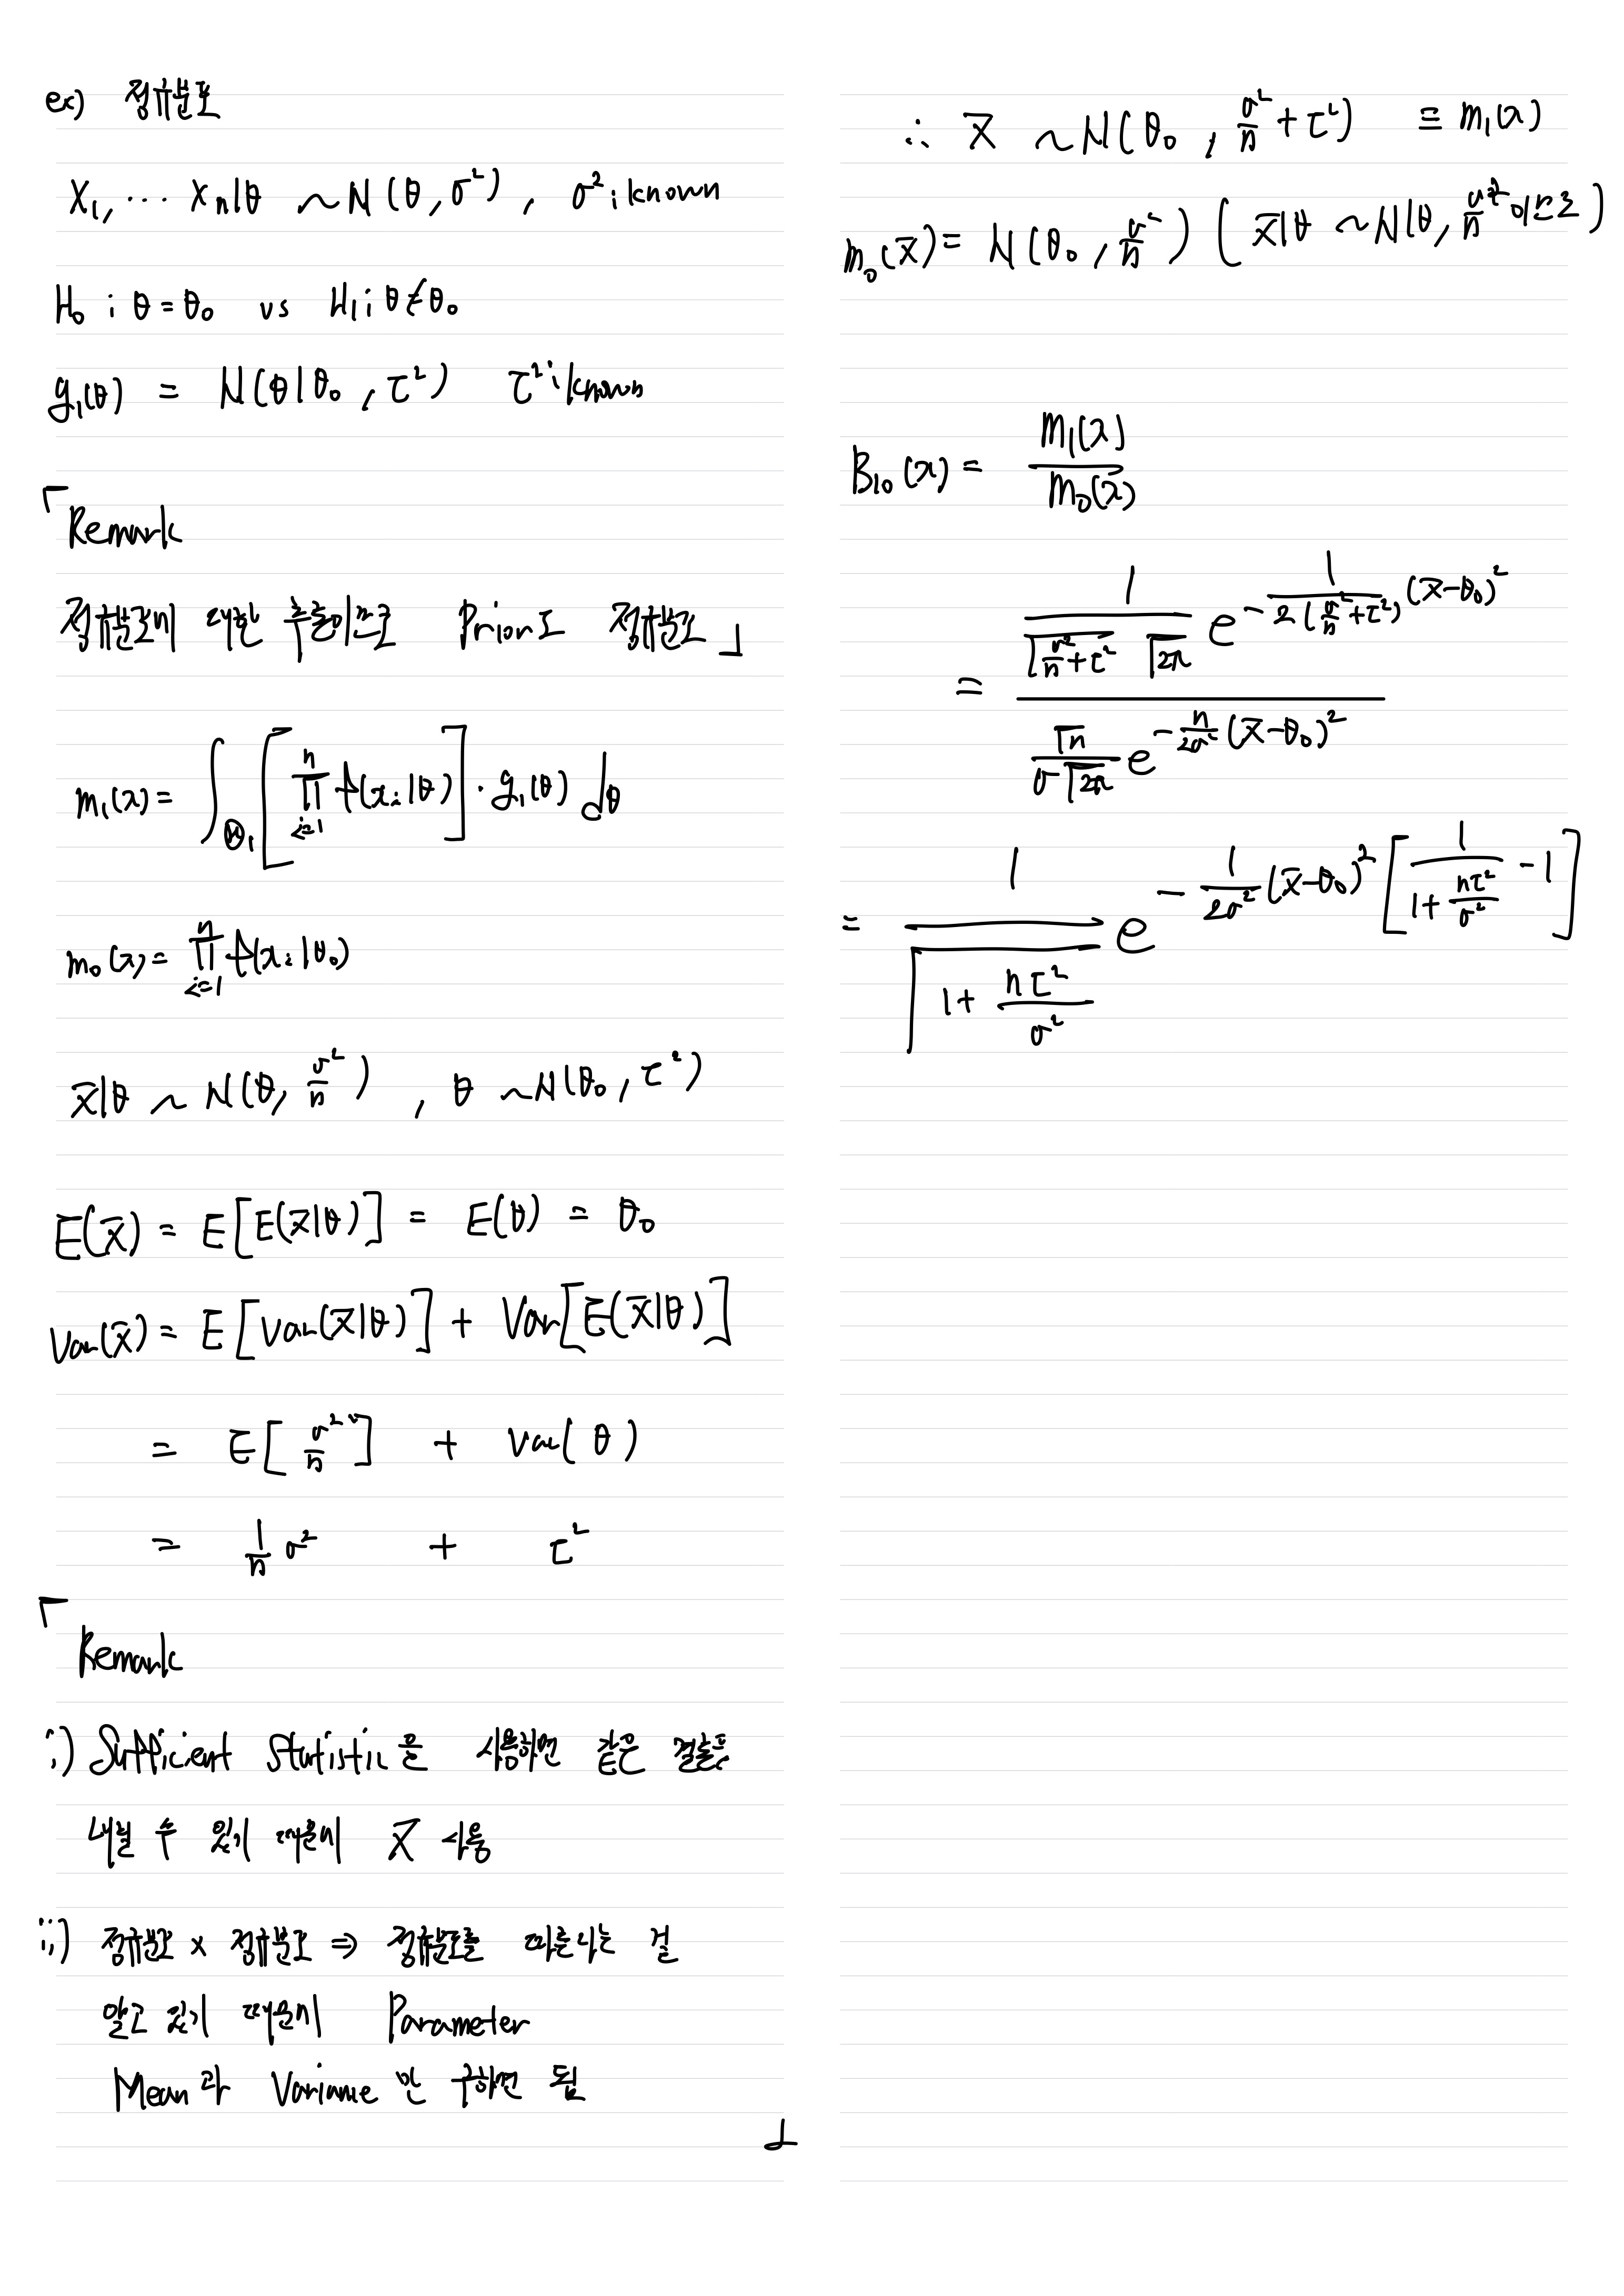 ex) 정규분포
X₁, ⋯ Xₙ|θ ~ N(θ, σ²), σ² : known
H₀ : θ = θ₀ vs H₁ : θ ≠ θ₀
g₁(θ) = N(θ|θ₀, τ²) τ² : known
「Remark
정규분포에 대한 추론이므로 Prior도 정규분포」
m₁(x) = ∫_Θ₁ [∏_{i=1}^{n} f(xᵢ|θ)] · g₁(θ) dθ
m₀(x) = ∏_{i=1}^{n} f(xᵢ|θ₀)
x̄|θ ~ N(θ, σ²/n), θ ~ N(θ₀, τ²)
E(x̄) = E[E(x̄|θ)] = E(θ) = θ₀
Var(x̄) = E[Var(x̄|θ)] + Var[E(x̄|θ)]
= E[σ²/n] + Var(θ)
= 1/n σ² + τ²
「Remark
i) Sufficient Statistic을 사용하면 같은 결론을
내릴 수 있기 때문에 x̄ 사용
ii) 정규분포 x 정규분포 ⇒ 정규분포를 따른다는 걸
알고 있기 때문에 Parameter
Mean과 Variance 만 구하면 됨
」
∴ x̄ ~ N(θ₀, σ²/n + τ²) ≡ m₁(x)
m₀(x̄) = N(θ₀, σ²/n) (x̄|θ ~ N(θ, σ²/n 이므로)
B₁₀(x) = m₁(x) / m₀(x)
= [1/(√(σ²/n + τ²) √2π) e^{-1/(2(σ²/n + τ²)) (x̄-θ₀)²}] / [√n/(σ√2π) e^{-n/2σ² (x̄-θ₀)²}]
= 1/√(1 + nτ²/σ²) e^{-1/2σ² (x̄-θ₀)² [1/(1 + nτ²/σ²) - 1]}